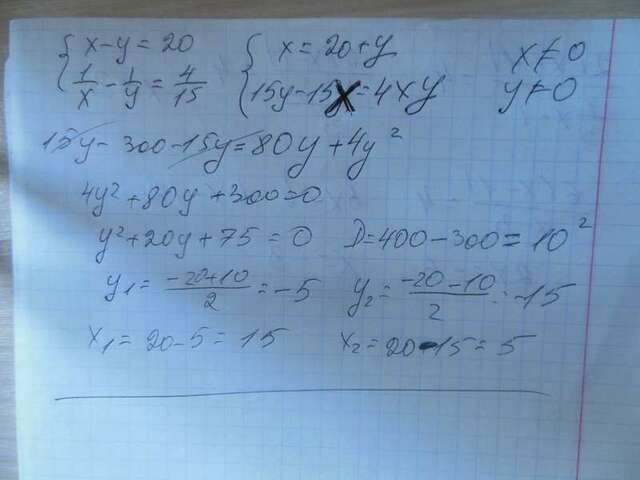 { x-y=20   { x=20+y   x≠0
1/x - 1/y = 4/15   15y-15x=4xy   y≠0
15y-300-15y=80y+4y²
4y²+80y+300=0
y²+20y+75=0   D=400-300=10²
y₁=(-20+10)/2=-5   y₂=(-20-10)/2=-15
x₁=20-5=15   x₂=20-15=5